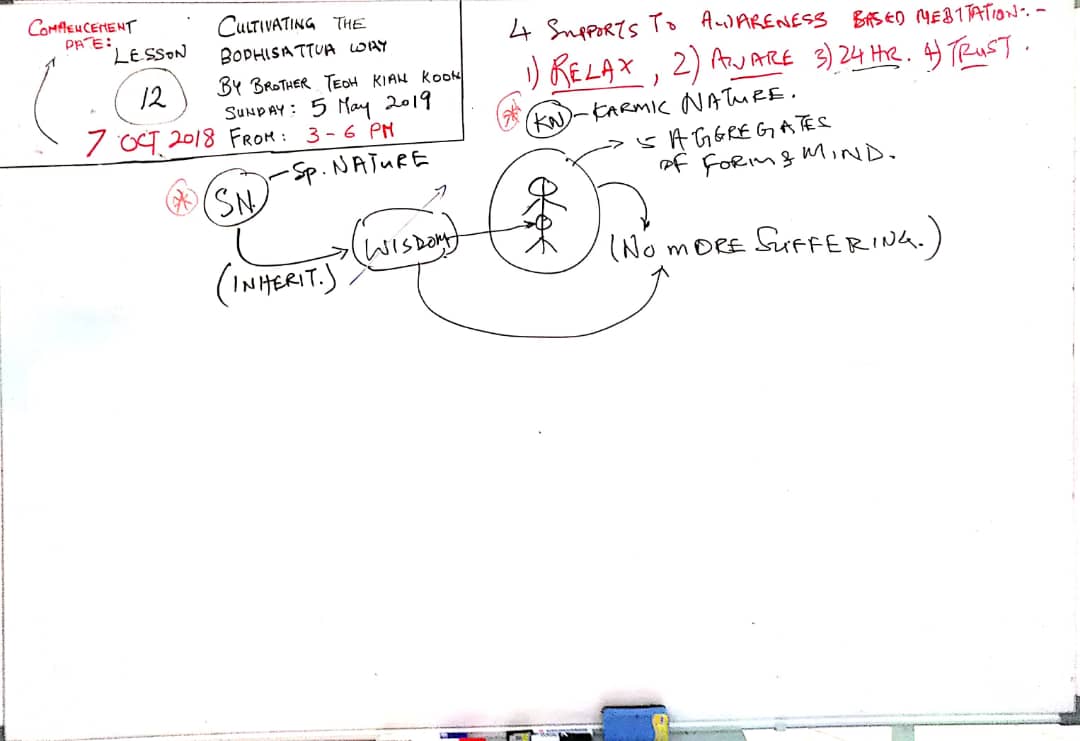 COMMENCEMENT
DATE:
LESSON
12
7 OCT. 2018
CULTIVATING THE
BODHISATTVA WAY
BY BROTHER TEOH KIAN KOON
SUNDAY: 5 May 2019
FROM: 3-6 PM
4 SUPPORTS TO AWARENESS BASED MEDITATION:-
1) RELAX, 2) AWARE 3) 24 HR. 4) TRUST.
KN - KARMIC NATURE.
5 AGGREGATES
OF FORM & MIND.
SN - Sp. NATURE
WISDOM
(INHERIT.)
(NO MORE SUFFERING.)